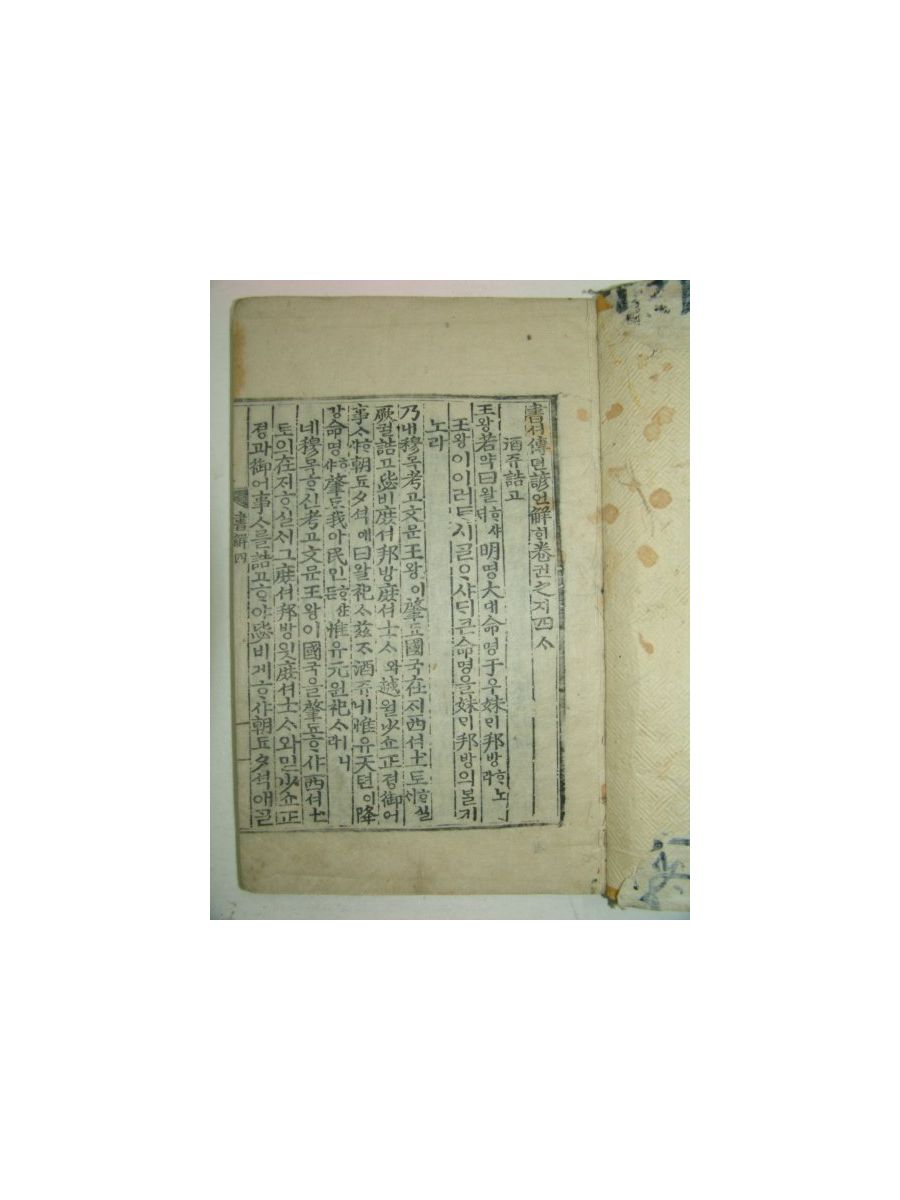 書셔傳뎐諺언解ᄒᆡ卷권之지四ᄉᆞ
酒쥬誥고
王왕若약曰왈ᄒᆞ샤ᄃᆡ明명大대命명于우妹ᄆᆡ邦방ᄒᆞ노라
王왕이이러ᄐᆞ시ᄀᆞᆯᄋᆞ샤ᄃᆡ큰命명을妹ᄆᆡ邦방의ᄇᆞᆯ기
노라
乃내穆목考고文문王왕이肇됴國국在ᄌᆡ西셔土토ᄒᆞ실ᄉᆡ
厥궐誥고毖비庶셔邦방庶셔士ᄉᆞ와越월少쇼正졍御어
事ᄉᆞᄒᆞ샤朝됴夕셕애曰왈祀ᄉᆞ玆ᄌᆞ酒쥬ㅣ니惟유天텬이降
강命명ᄒᆞ샤肇됴我아民민ᄒᆞ샨ᄃᆞᆫ惟유元원祀ᄉᆞㅣ러니라
네穆목ᄒᆞ신考고文문王왕이國국을肇됴ᄒᆞ샤西셔土
토의在ᄌᆡᄒᆞ실ᄉᆡ그庶셔邦방읫庶셔士ᄉᆞ와밋少쇼正
졍과御어事ᄉᆞ를誥고ᄒᆞ야毖비게ᄒᆞ샤朝됴夕셕애ᄀᆞᆯ
書解四